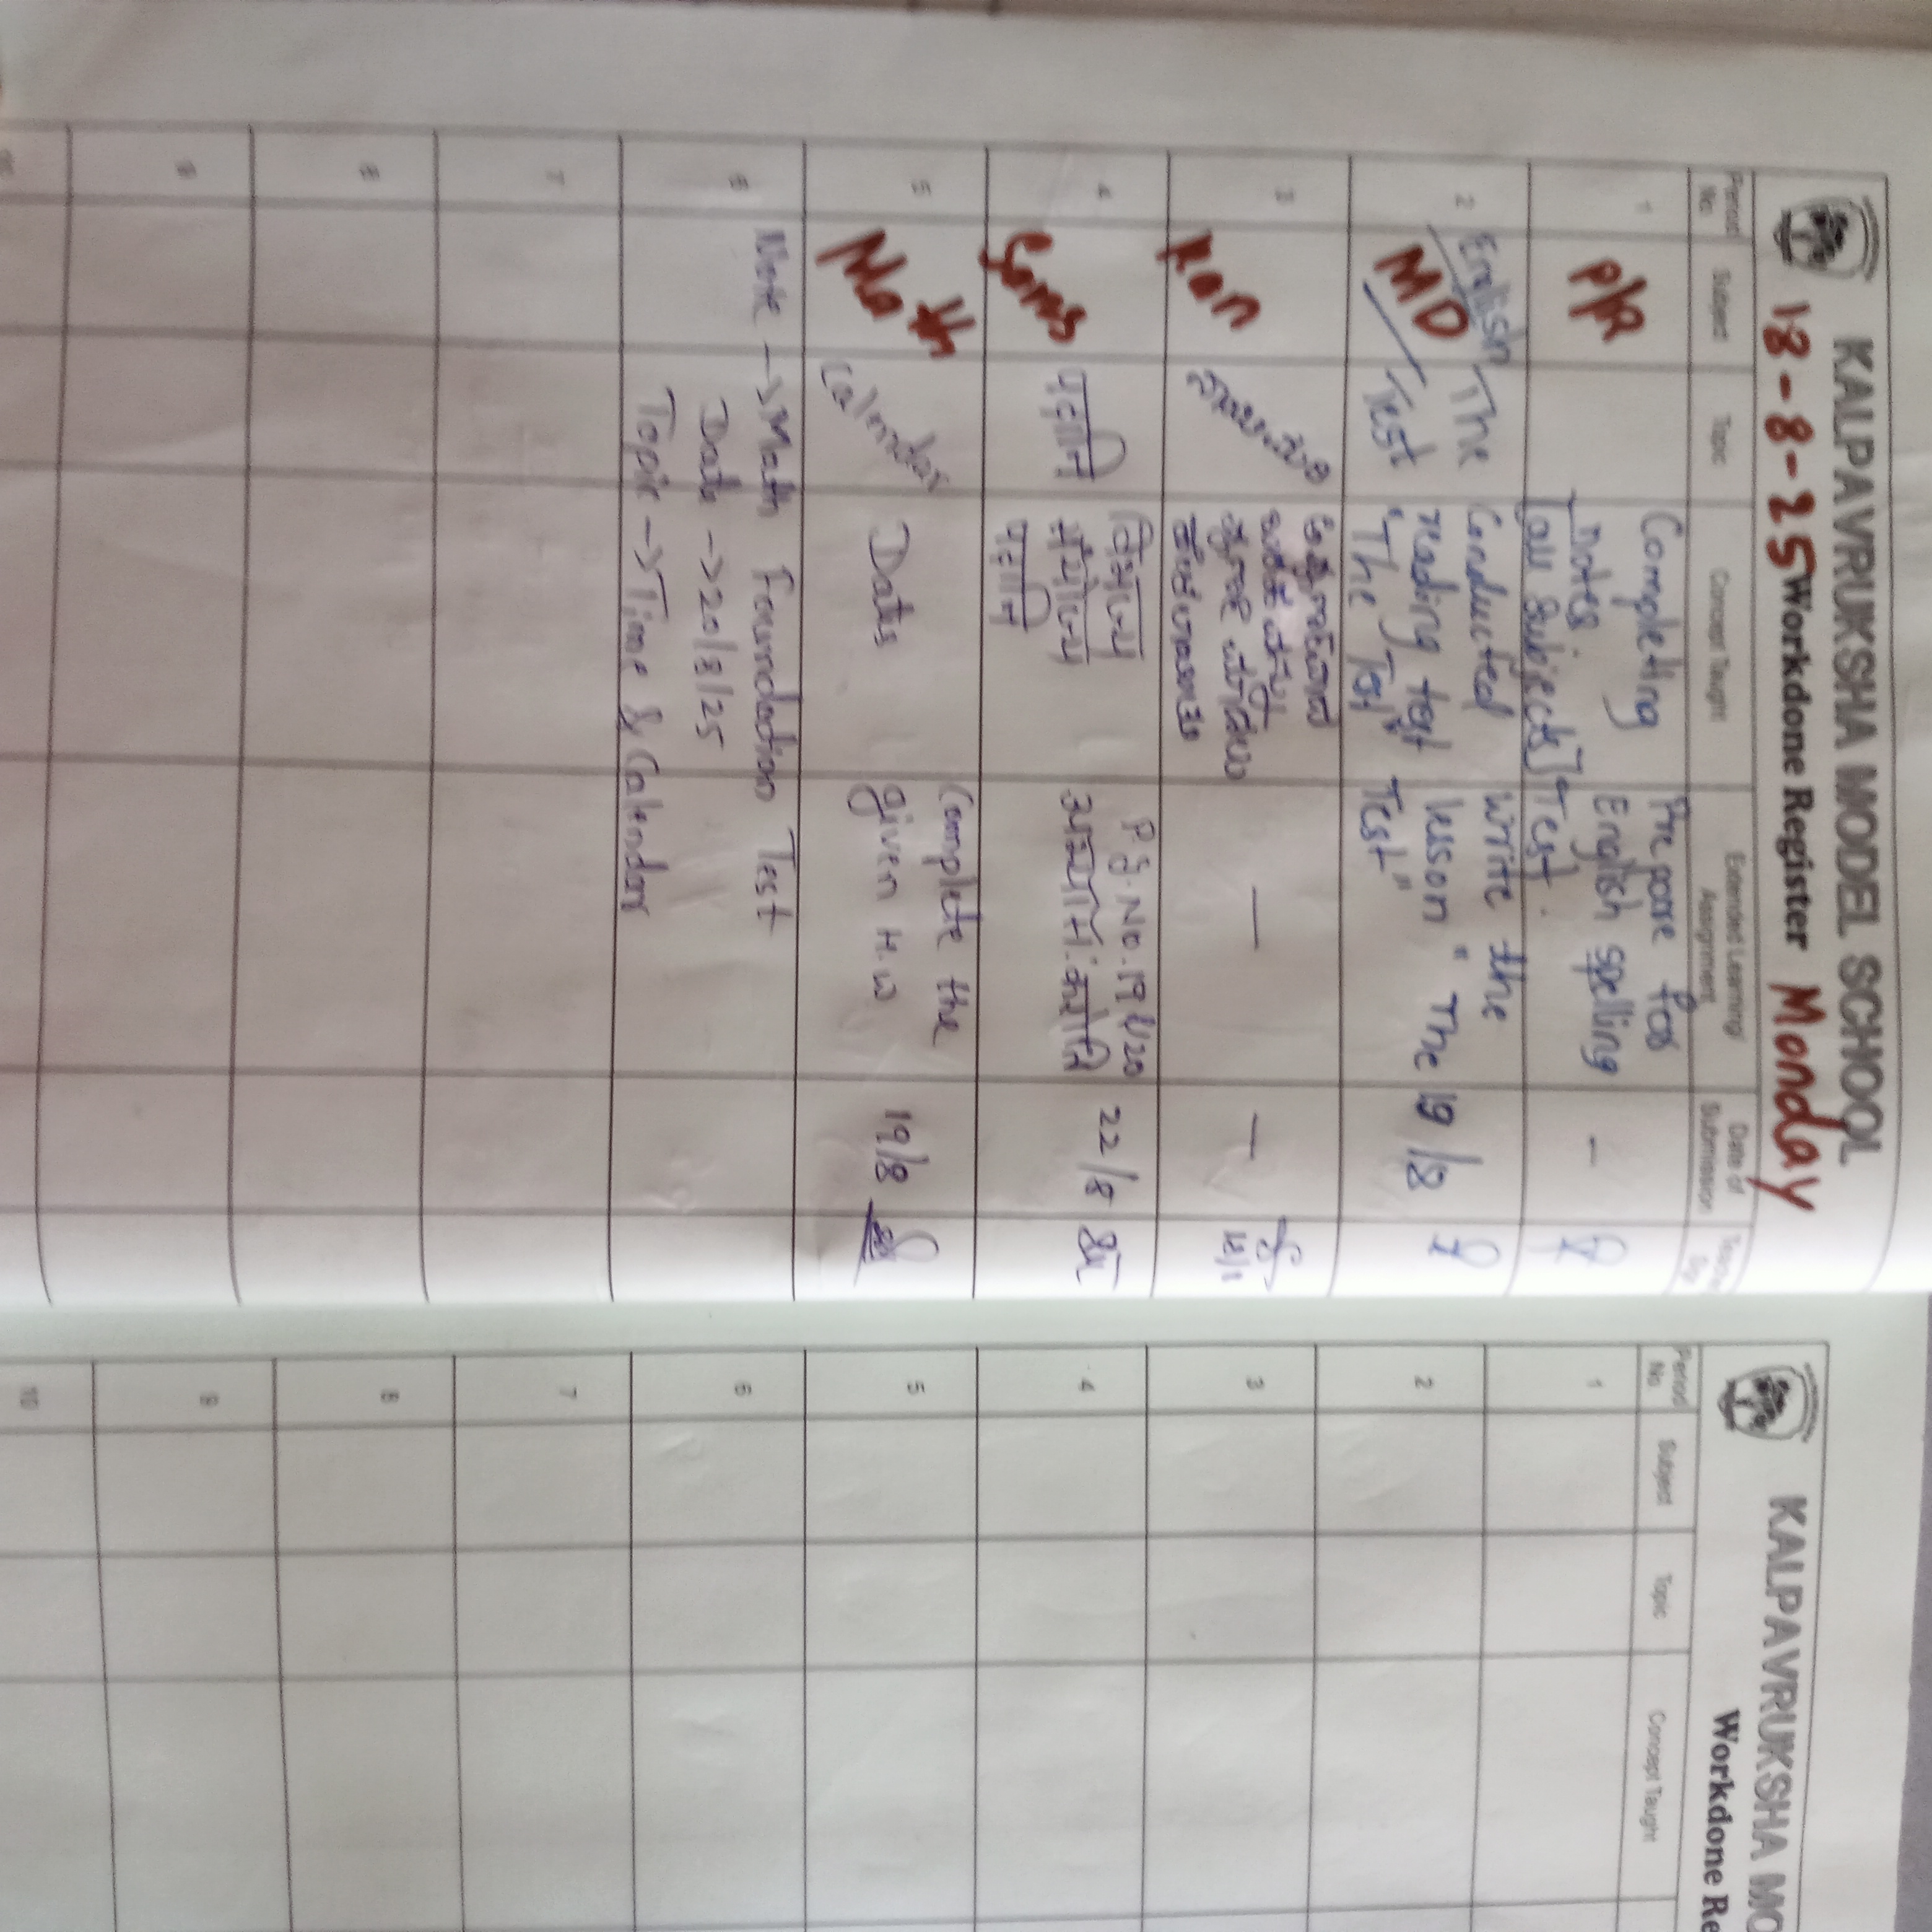 KALPAVRUKSHA MODEL SCHOOL
18-8-25 Workdone Register Monday
Period No. Subject Topic Concept Taught Extended Learning/ Assignment Date of Submission
1 P/R Completing Notes [all subjects] Prepare for English spelling Test. -
2 English MD The Test Conducted reading test "The Test" write the lesson "The Test" 19/8
3 Kan — —
4 Sans Pg.No.19 & 20 22/8
5 Math Calendar Dates Complete the given H.W 19/8
6 Note → Math Foundation Test
Date → 20/8/25
Topic → Time & Calendar
7
8
9
10
KALPAVRUKSHA MO
Workdone Re
Period No. Subject Topic Concept Taught
1
2
3
4
5
6
7
8
9
10